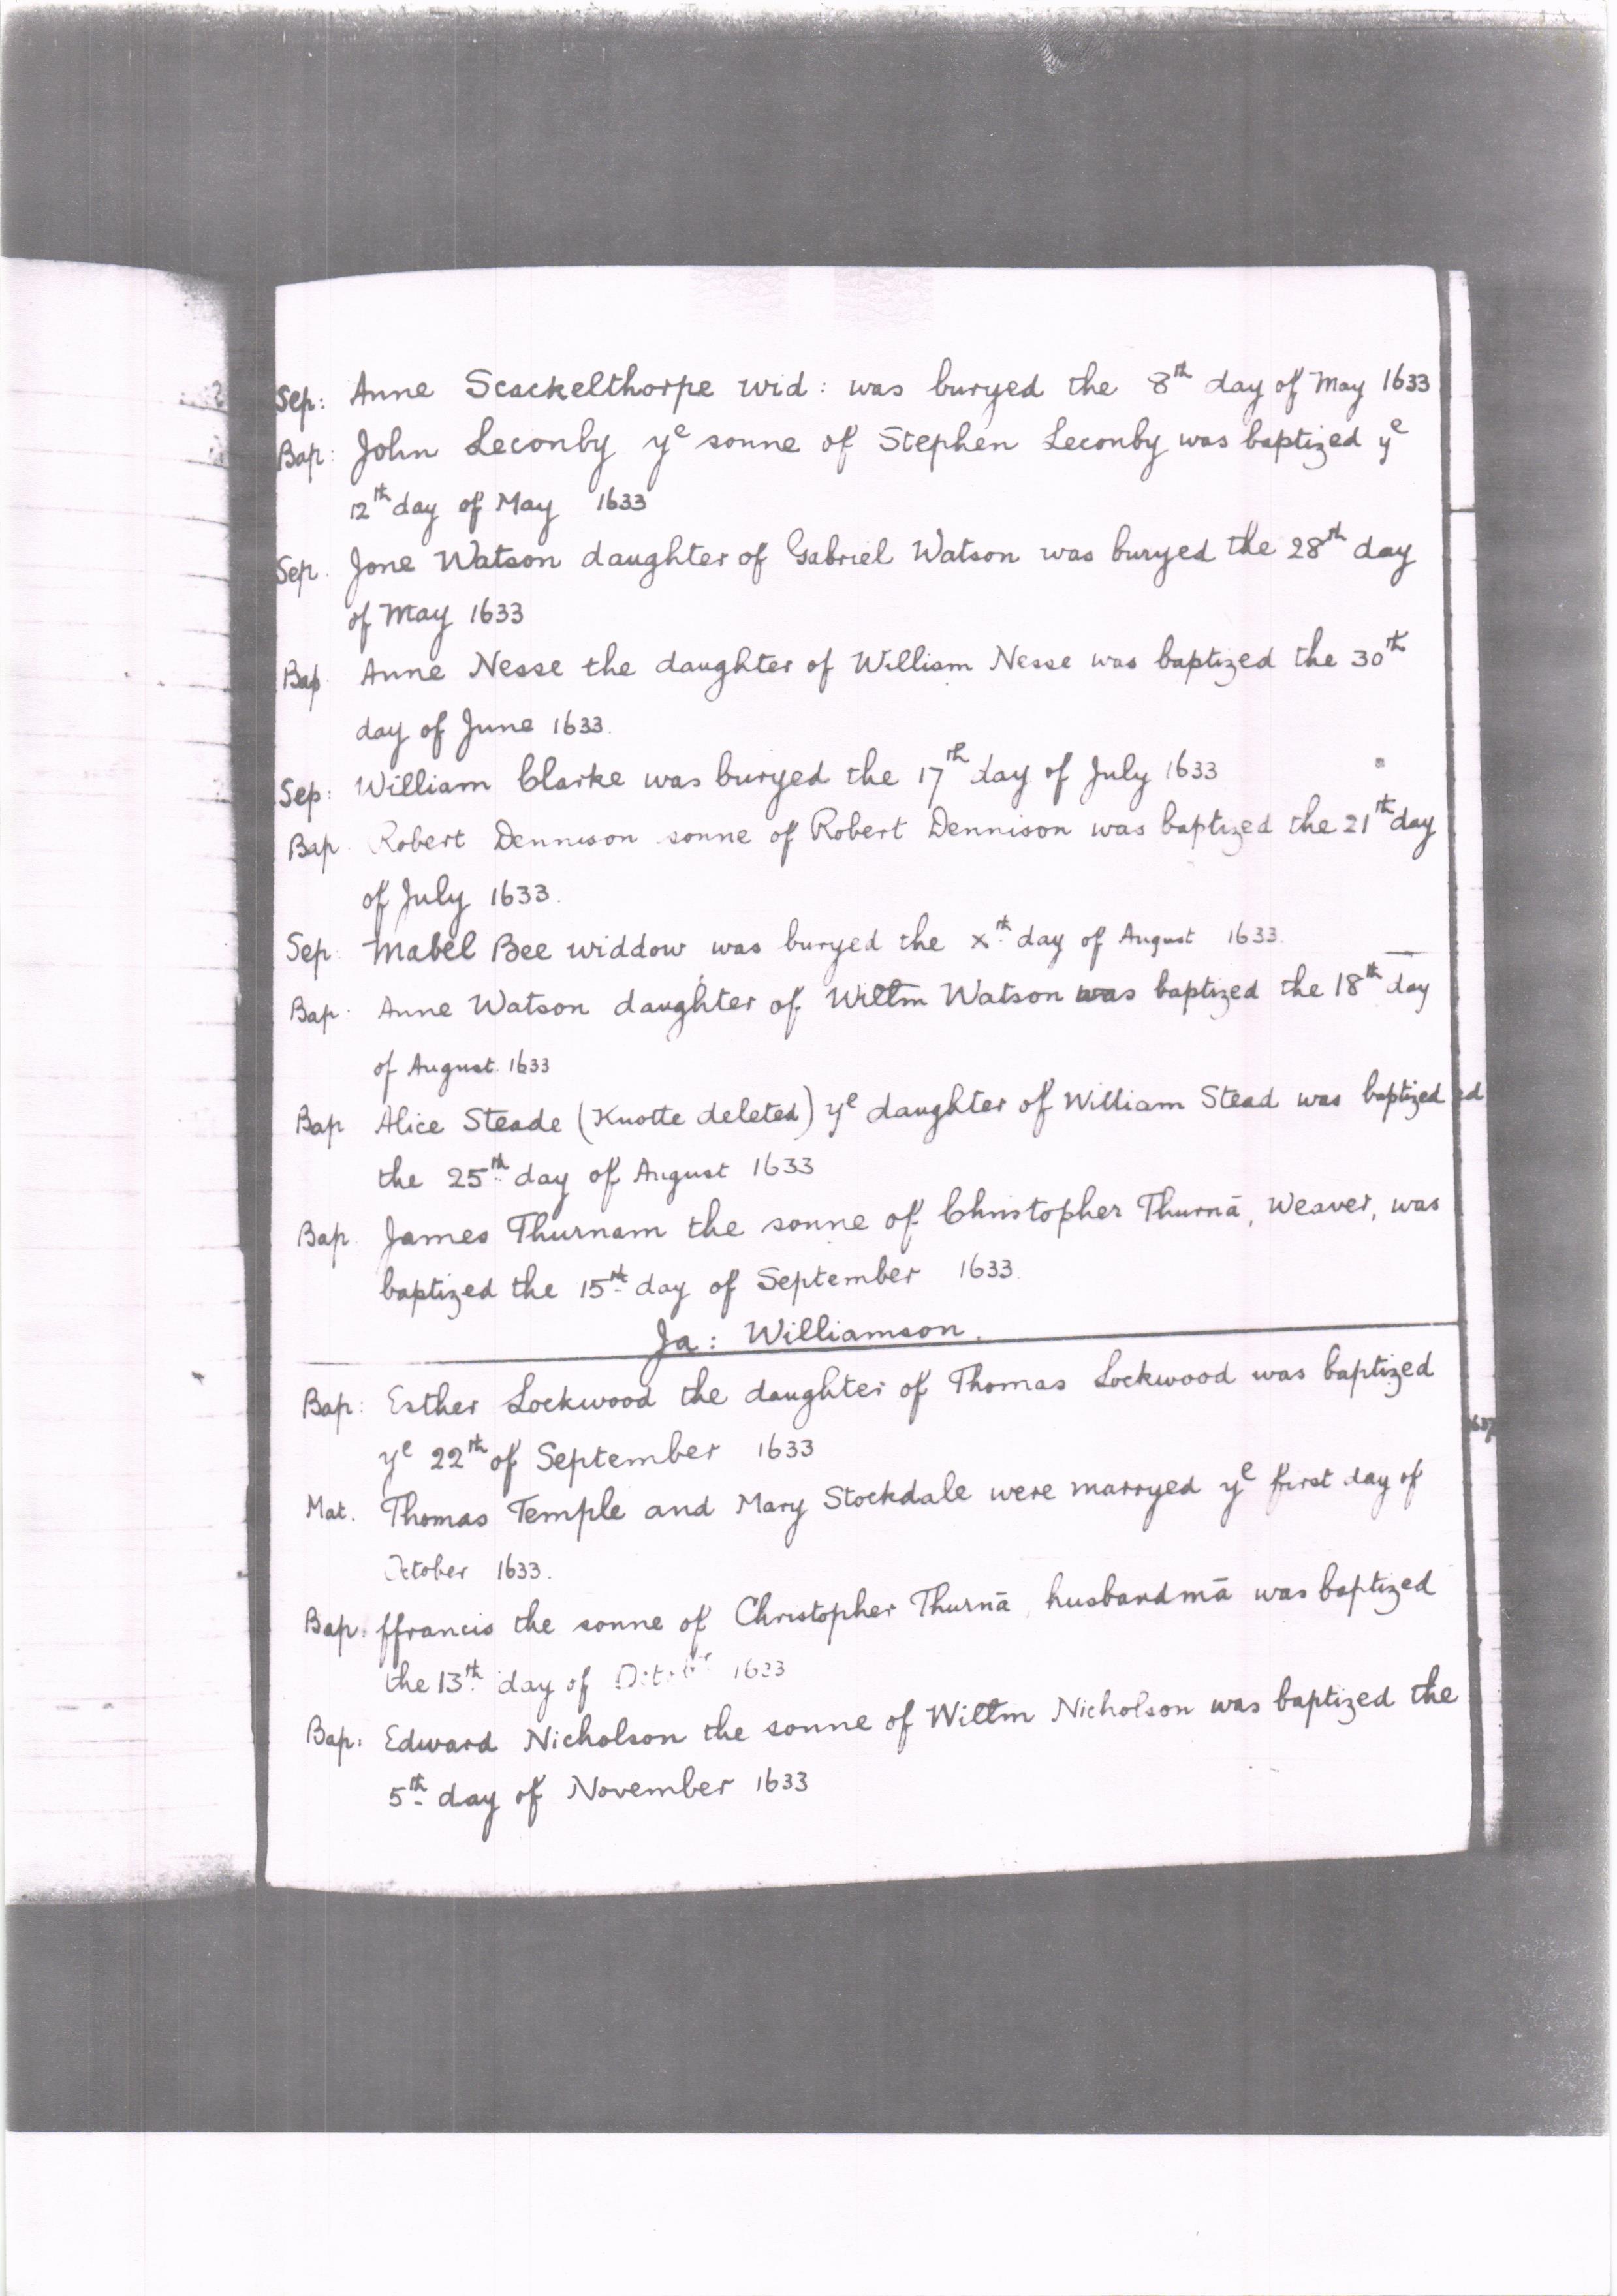 Sep: Anne Scackelthorpe wid: was buryed the 8th day of May 1633
Bap: John Leconby ye sonne of Stephen Leconby was baptized ye
12th day of May 1633
Sep. Jone Watson daughter of Gabriel Watson was buryed the 28th day
of May 1633
Bap Anne Nesse the daughter of William Nesse was baptized the 30th
day of June 1633.
Sep: William Clarke was buryed the 17th day of July 1633
Bap Robert Dennison sonne of Robert Dennison was baptized the 21th day
of July 1633.
Sep. Mabel Bee widdow was buryed the xth day of August 1633.
Bap. Anne Watson daughter of Willm Watson was baptized the 18th day
of August. 1633
Bap Alice Steade (Knotte deleted) ye daughter of William Stead was baptized
the 25th day of August 1633
Bap James Thurnam the sonne of Christopher Thurnā, Weaver, was
baptized the 15th day of September 1633.
Ja: Williamson.
Bap: Esther Lockwood the daughter of Thomas Lockwood was baptized
ye 22th of September 1633
Mat. Thomas Temple and Mary Stockdale were marryed ye first day of
October 1633.
Bap. ffrancis the sonne of Christopher Thurnā, husbandmā was baptized
the 13th day of 1633
Bap. Edward Nicholson the sonne of Willm Nicholson was baptized the
5th day of November 1633